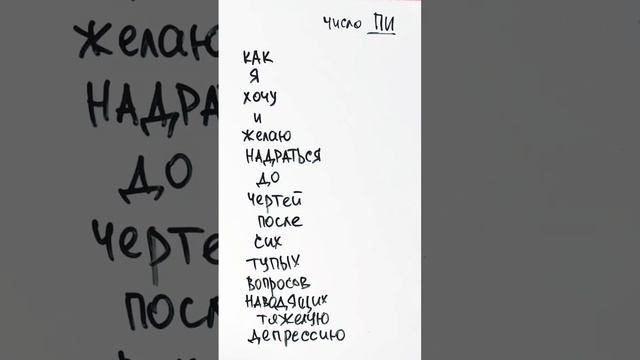 число ПИ
КАК
Я
хочу
и
желаю
НАДРАТЬСЯ
ДО
чертей
после
сих
тупых
вопросов
наводящих
тяжелую
депрессию